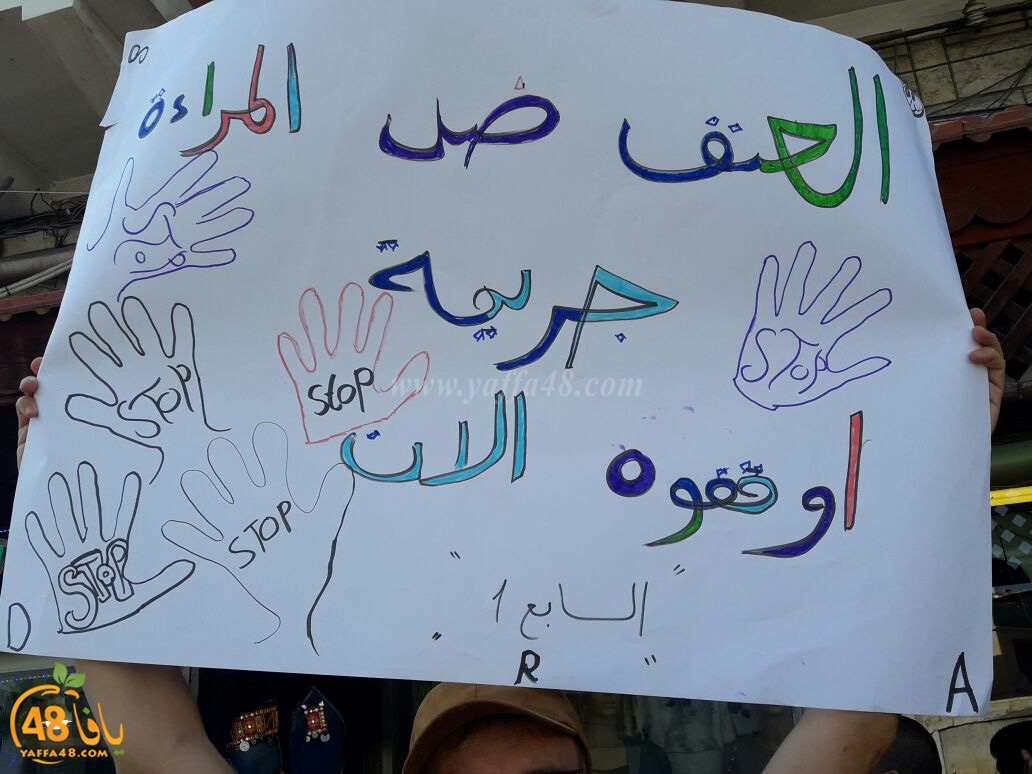 العنف ضد المراءة
جريمة
اوقفوه الان
STOP
STOP
stop
STOP
STOP
"السابع 1"
D
R
A
www.yaffa48.com
يافا 48
YAFFA48.COM